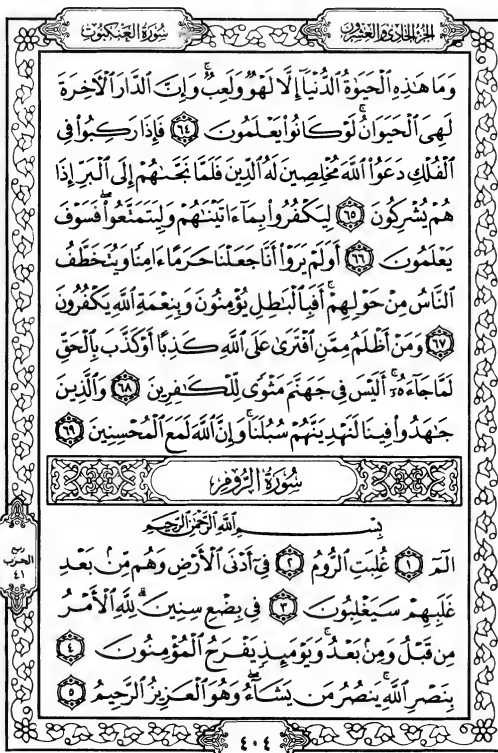 الجزء الحادي والعشرون
سورة العنكبوت
وَمَا هَٰذِهِ ٱلْحَيَوٰةُ ٱلدُّنْيَآ إِلَّا لَهْوٌ وَلَعِبٌ ۚ وَإِنَّ ٱلدَّارَ ٱلْأَخِرَةَ
لَهِىَ ٱلْحَيَوَانُ ۚ لَوْ كَانُوا۟ يَعْلَمُونَ ٦٤ فَإِذَا رَكِبُوا۟ فِى
ٱلْفُلْكِ دَعَوُا۟ ٱللَّهَ مُخْلِصِينَ لَهُ ٱلدِّينَ فَلَمَّا نَجَّىٰهُمْ إِلَى ٱلْبَرِّ إِذَا
هُمْ يُشْرِكُونَ ٦٥ لِيَكْفُرُوا۟ بِمَآ ءَاتَيْنَٰهُمْ وَلِيَتَمَتَّعُوا۟ ۖ فَسَوْفَ
يَعْلَمُونَ ٦٦ أَوَلَمْ يَرَوْا۟ أَنَّا جَعَلْنَا حَرَمًا ءَامِنًا وَيُتَخَطَّفُ
ٱلنَّاسُ مِنْ حَوْلِهِمْ ۚ أَفَبِٱلْبَٰطِلِ يُؤْمِنُونَ وَبِنِعْمَةِ ٱللَّهِ يَكْفُرُونَ
٦٧ وَمَنْ أَظْلَمُ مِمَّنِ ٱفْتَرَىٰ عَلَى ٱللَّهِ كَذِبًا أَوْ كَذَّبَ بِٱلْحَقِّ
لَمَّا جَآءَهُۥٓ ۚ أَلَيْسَ فِى جَهَنَّمَ مَثْوًى لِّلْكَٰفِرِينَ ٦٨ وَٱلَّذِينَ
جَٰهَدُوا۟ فِينَا لَنَهْدِيَنَّهُمْ سُبُلَنَا ۚ وَإِنَّ ٱللَّهَ لَمَعَ ٱلْمُحْسِنِينَ ٦٩
سُورَةُ الرُّومِ
بِسْمِ ٱللَّهِ ٱلرَّحْمَٰنِ ٱلرَّحِيمِ
الٓمٓ ١ غُلِبَتِ ٱلرُّومُ ٢ فِىٓ أَدْنَى ٱلْأَرْضِ وَهُم مِّنۢ بَعْدِ
غَلَبِهِمْ سَيَغْلِبُونَ ٣ فِى بِضْعِ سِنِينَ ۗ لِلَّهِ ٱلْأَمْرُ
مِن قَبْلُ وَمِنۢ بَعْدُ ۚ وَيَوْمَئِذٍ يَفْرَحُ ٱلْمُؤْمِنُونَ ٤
بِنَصْرِ ٱللَّهِ ۚ يَنصُرُ مَن يَشَآءُ ۖ وَهُوَ ٱلْعَزِيزُ ٱلرَّحِيمُ ٥
ربع
الحزب
٤١
٤٠٤